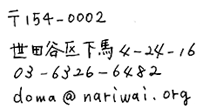 〒154-0002
世田谷区下馬4-24-16
03-6326-6482
doma@nariwai.org